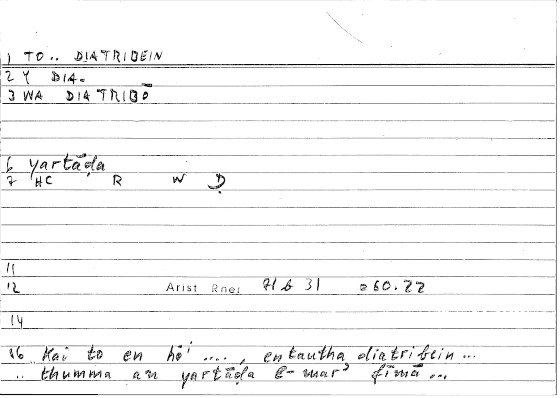 1 TO .. DIATRIBEIN
2 Y DIA.
3 WA DIATRIBŌ
6 yartāḍa
7 HC R W Ḍ
11
12 Arist Rhet 71 b 31 260.22
14
16 .. Kai to en hōi ...., entautha diatribein ...
.. thumma an yartāḍa l-marʾ fīmā ...